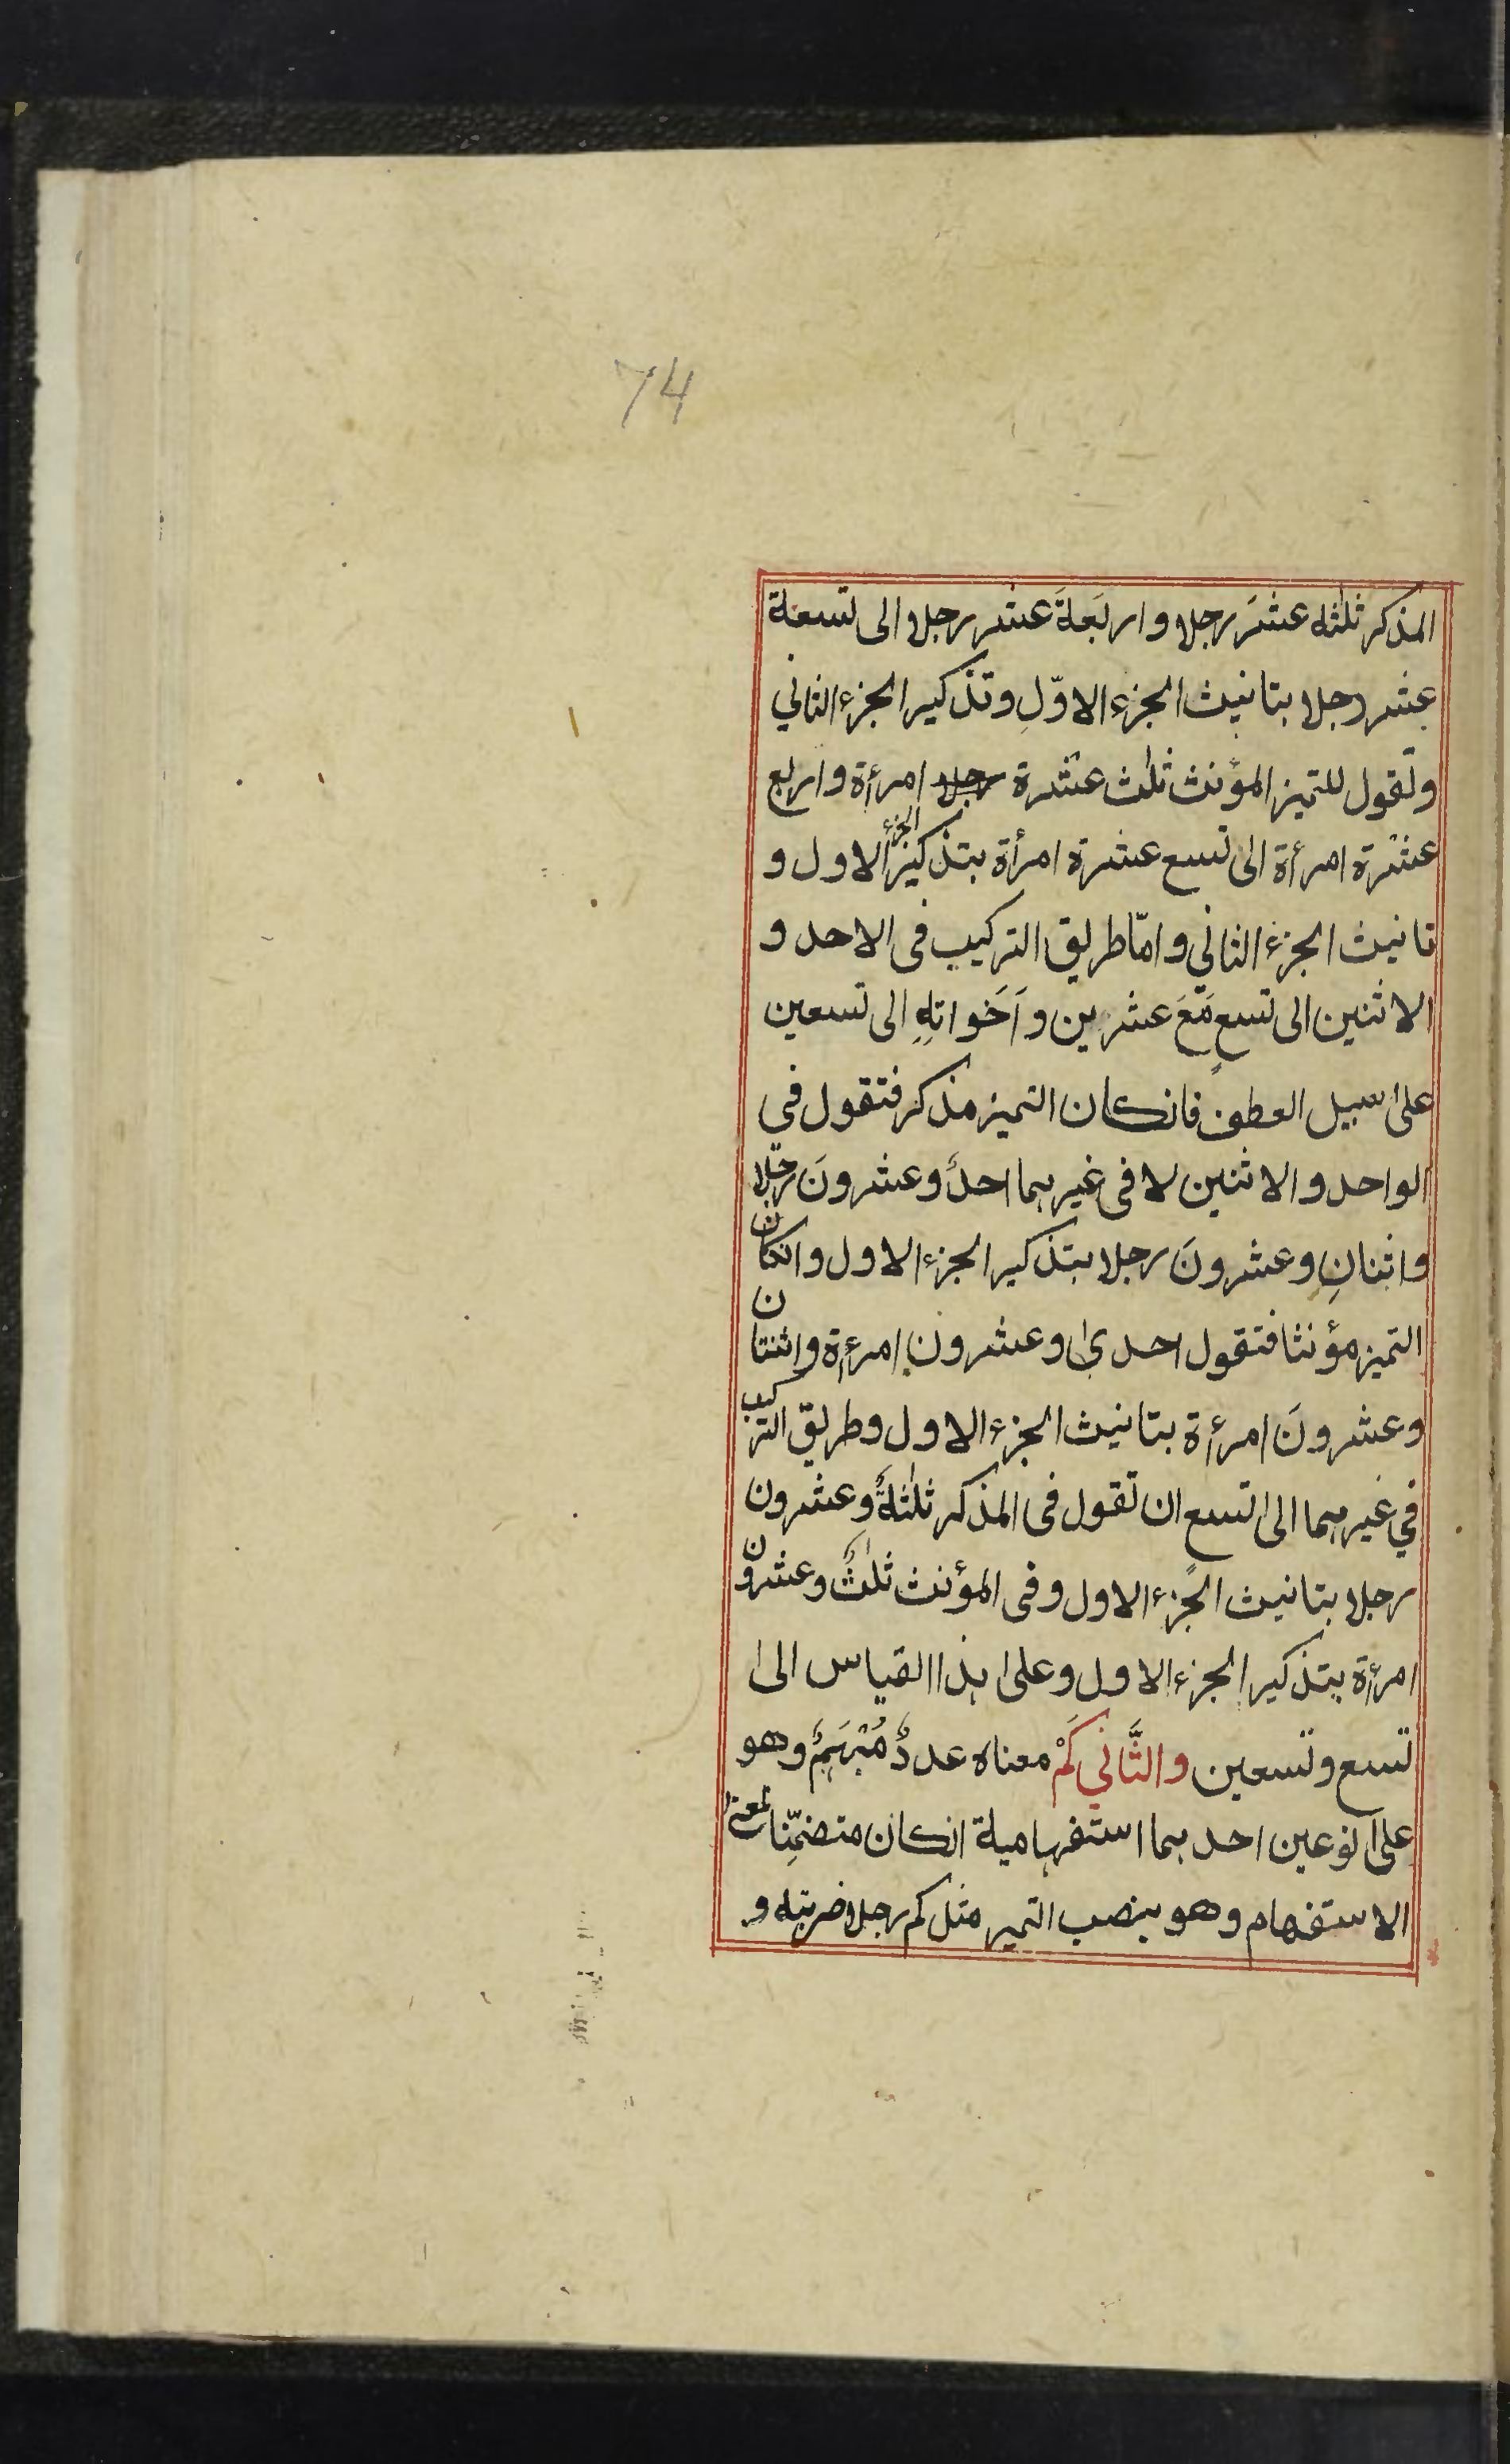 74
المذكر ثلٰثة عشَرَ رجلا واربَعةَ عشر رجلا الى تسعة
عشر رجلا بتانيث الجزء الاوّلِ وتذكير الجزء الثاني
وتقول للتميز المؤنث ثلٰث عشرة رجلا امرأة واربع
عشرة امرأة الى تسع عشرة امرأة بتذكير الجزء الاول و
تانيث الجزء الثاني وامّا طريق التركيب في الاحد و
الاثنين الى تسعٍ مَعَ عشرين وأَخَواتِهِ الى تسعين
على سبيل العطف فانكان التميز مذكر فتقول في
الواحد والاثنين لا في غيرهما احدٌ وعشرونَ رجلا
واثنانِ وعشرونَ رجلا بتذكير الجزء الاول وانكان
التميز مؤنثا فتقول احدىٰ وعشرون امرءة واثنتان
وعشرونَ امرءة بتانيث الجزء الاول وطريق التركيب
في غيرهما الى تسع ان تقول في المذكر ثلٰثةٌ وعشرون
رجلا بتانيث الجزء الاول وفى المؤنث ثلٰثٌ وعشرون
امرءة بتذكير الجزء الاول وعلى هذا القياس الى
تسع وتسعين والثَّاني كَمْ معناه عددٌ مُبْهَمٌ وهو
على نوعين احدهما استفهامية انكان متضمِّنا لمعنى
الاستفهام وهو ينصب التميز مثل كم رجلا ضربته و